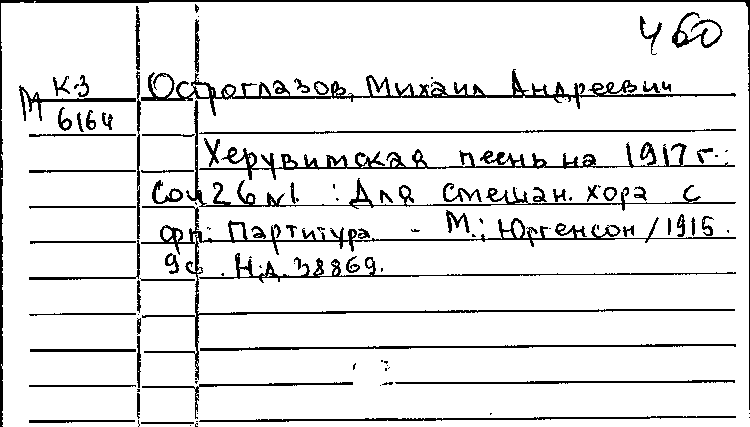 Ч60
М К-3
6164
Остроглазов, Михаил Андреевич
Херувимская песнь на 1917 г.:
Соч 26 №1. : Для смешан. хора с
фп: Партитура - М.; Юргенсон /1916.
9с. Н.д. 38869.